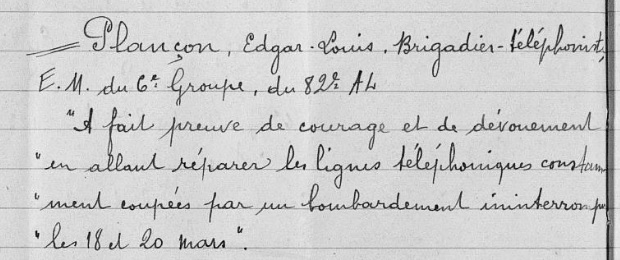 Plançon, Edgar-Louis, Brigadier-téléphonist,
E. M. du 6e Groupe, du 82e AL
"A fait preuve de courage et de dévouement
"en allant réparer les lignes téléphoniques constam
"ment coupées par un bombardement ininterrompu
"les 18 et 20 mars".